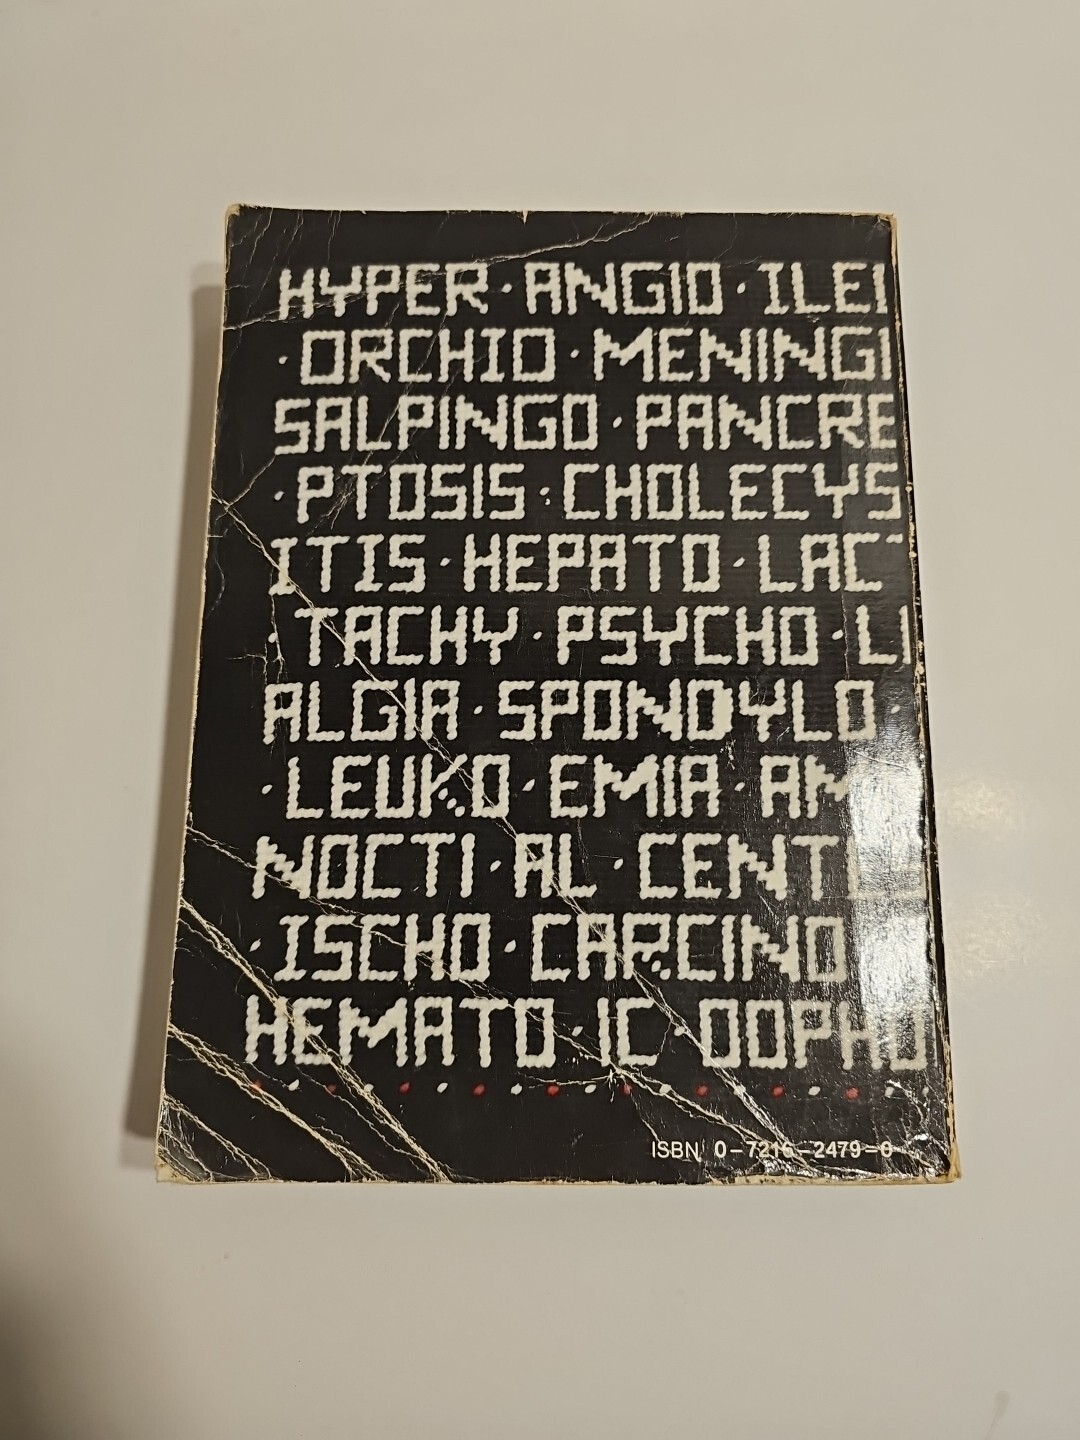 HYPER · ANGIO · ILEI
· ORCHIO · MENINGI
SALPINGO · PANCRE
· PTOSIS · CHOLECYS
ITIS · HEPATO · LAC
· TACHY · PSYCHO · LI
ALGIA · SPONDYLO ·
· LEUKO · EMIA · AM
NOCTI · AL · CENTI
· ISCHO · CARCINO
HEMATO · IC · OOPHO
ISBN 0-7216-2479-0